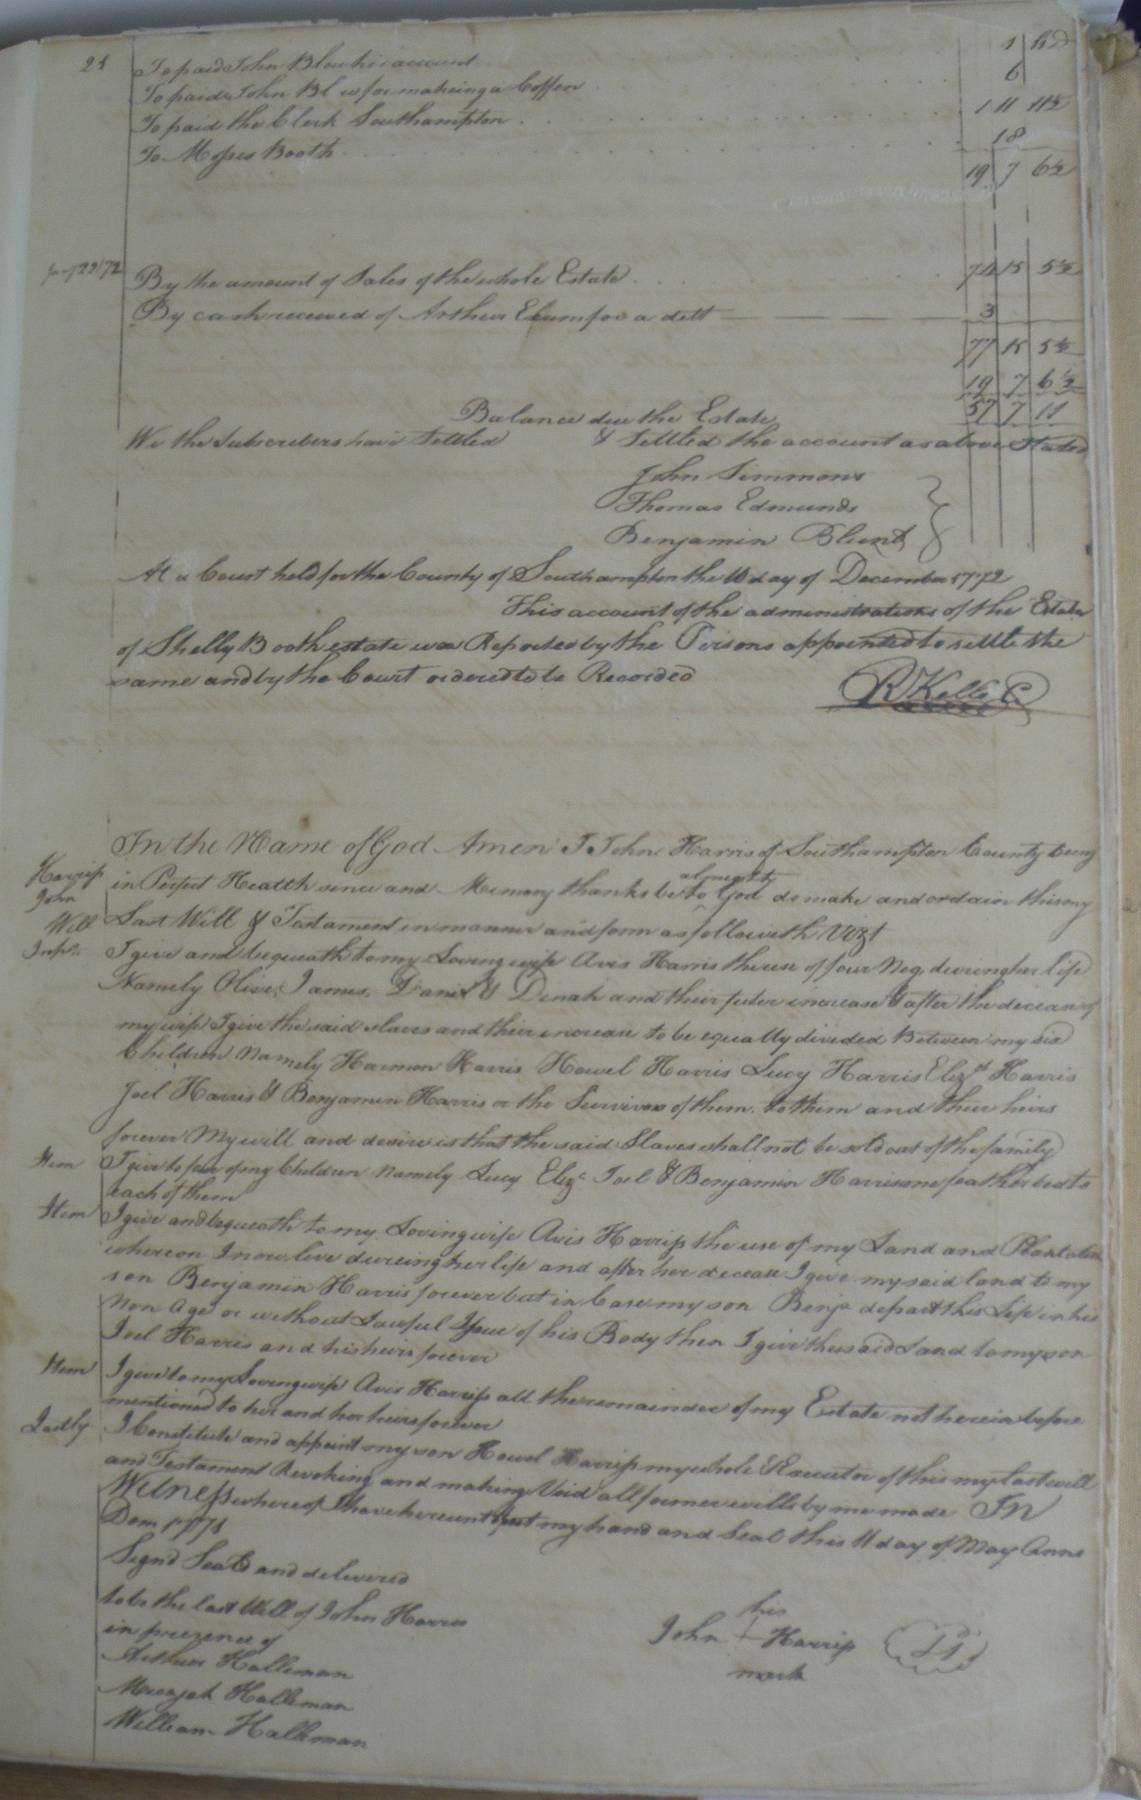 24 To paid John Blow his account 1 h d
To paid John Bl w for makeing a Coffen 6
To paid the Clerk Southampton 1 11 11½
To Moses Booth 18
19 7 6½
22 /72 By the amount of Sales of the whole Estate 74 15 5½
By cash received of Arthur for a dett 3
77 15 5½
19 7 6½
Balance due the Estate 57 7 11
We the Subscribers have Settled & Settled the account as above Stated
John Simmons
Thomas Edmunds
Benjamin Blunt
At a Court held for the County of Southampton the 10 day of December 1772
This account of the administrations of the Estate
of Shelly Booth estate was Reported by the Persons appointed to settle the
same and by the Court ordered to be Recorded
R Kello C
In the Name of God Amen I John Harris of Southampton County being
Harriss in Perfect Health sence and Memory thanks be to almighty God do make and ordain this my
John
Will Last Will & Testament in manner and form as followeth Vizt
I give and bequeath to my Loveing wife Avis Harris the use of four Neg. dureing her life
Namely Olive, James, Daniel & Dinah and their futer increase & after the decease of
my wife I give the said slaves and their increase to be equally divided Between my six
Children Namely Harmon Harris Howel Harris Lucy Harris Elizth Harris
Joel Harris & Benjamin Harris or the Survivors of them. to them and their heirs
forever My will and desire is that the said Slaves shall not be sold out of the family
Item I give to four of my Children namely Lucy Eliza Joel & Benjamin Harris one feather bed to
each of them
Item I give and bequeath to my Loving wife Avis Harriss the use of my Land and Plantation
whereon I now live dureing her life and after her decease I give my said land to my
son Benjamin Harris forever but in Case my son Benja depart this Life in his
Non Age or without Lawful Issue of his Body then I give the said Land to my son
Joel Harris and his heirs forever
Item I give to my Loveing wife Avis Harriss all the remainder of my Estate not herein before
mentioned to her and her heirs forever
Lastly I Constitute and appoint my son Howel Harriss my whole Executor of this my last will
and Testament Revoking and making Void all former wills by me made IN
Witness whereof I have hereunto set my hand and Seal this 11 day of May Anno
Dom 1771
Signd Seald and delivered
to be the last Will of John Harris
in presence of
his
John + Harriss LS
mark
Arthur Holleman
Micajah Holleman
William Holleman